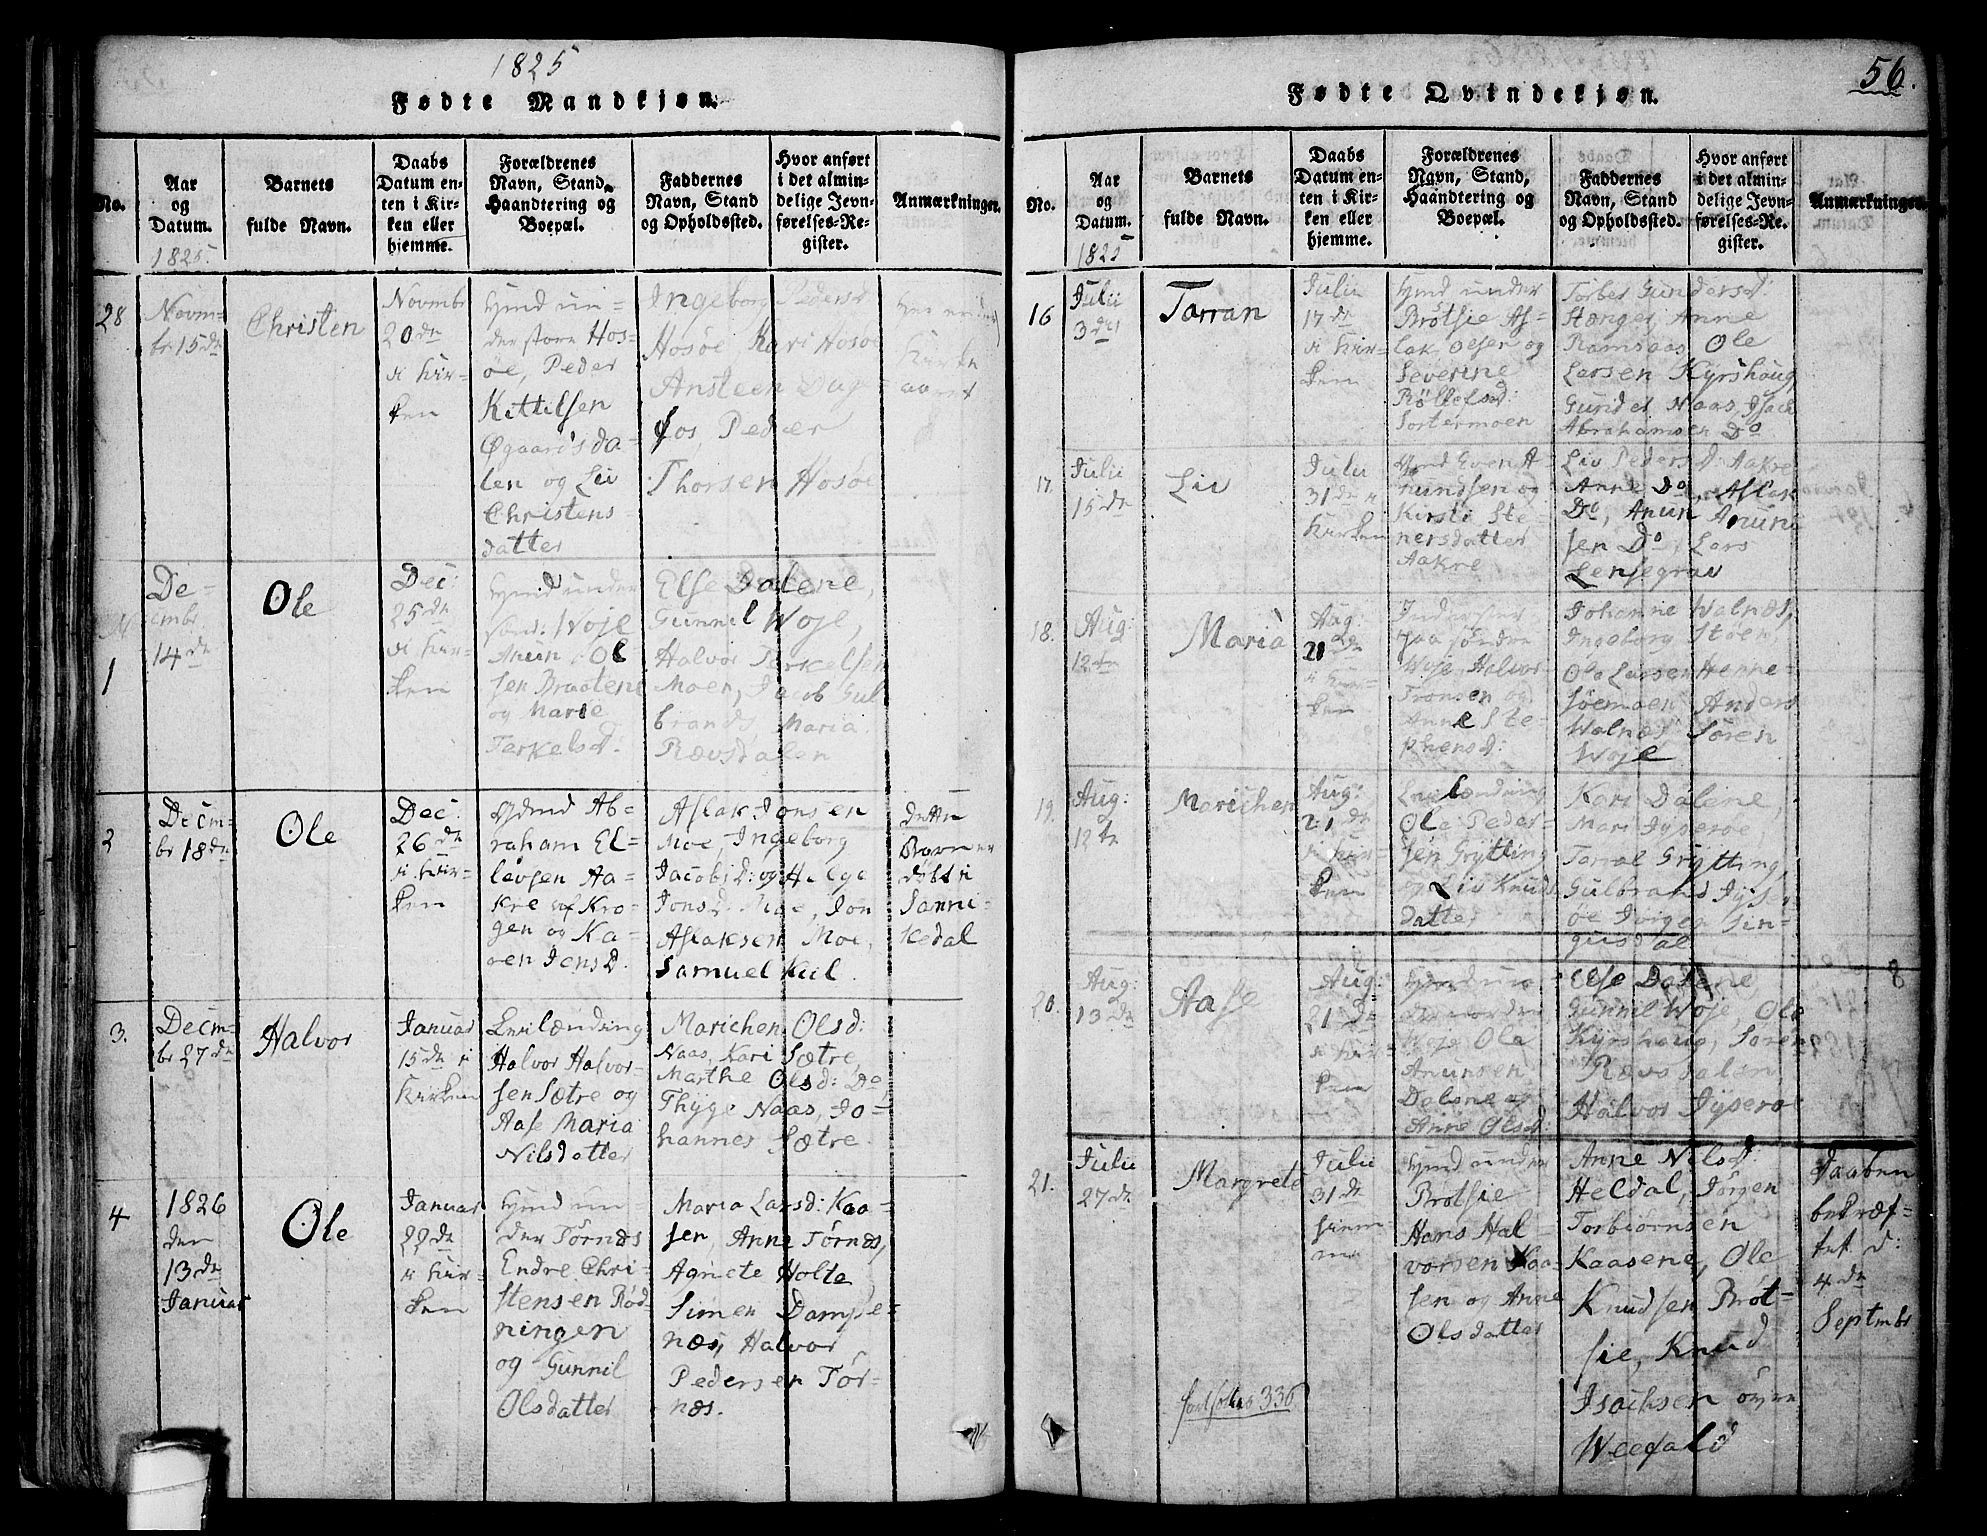 1825
Fødte Mandkjøn.
No.
Aar
og
Datum.
1825.
Barnets
fulde Navn.
Daabs
Datum en-
ten i Kir-
ken eller
hjemme.
Forældrenes
Navn, Stand,
Haandtering og
Boepæl.
Faddernes
Navn, Stand
og Opholdssted.
Hvor anført
i det almin-
delige Jevn-
førelses-Re-
gister.
Anmærkninger.
28
Novm-
br 15de
Christen
Novmbr
20de
i Kir-
ken
Huusmd un-
der store Hos-
øe, Peder
Kittilsen
Øgaardsda-
len og Liv
Christens-
datter
Ingeborg Pedersd
Hosøe Kari Hosøe
Ansteen Dag-
fos, Peder
Thorsen Hosøe
1
De-
cembr
14de
Ole
Dec:
25de
i Kir-
ken
Huusmd under
Woje
Anun Ol-
sen Braatene
og Marie
Terkelsd:
Else Dalene,
Gunnil Woje,
Halvor Terkelsen
Moen, Jacob Gul-
brands, Maria
Rævsdalen
2
Decm-
br 18de
Ole
Dec:
26de
i Kir-
ken
Gdmd Ab-
raham El-
levsen Aa-
kre af Kro-
gen og Ka-
ren Jensd.
Aslak Jonsen
Moe, Ingeborg
Jacobsd: og Helge
Jonsd. Moe, Jon
Aslaksen Moe,
Samuel Kiil.
Dette
Barn er
døbt i
Sanni-
kedal
3.
Decm-
br 27de
Halvor
Januar
15de i
Kirken
Leilænding
Halvor Halvor-
sen Sætre og
Aase Maria
Nilsdatter
Marichen Olsd:
Naas, Kari Sætre,
Marthe Olsd: Do
Thyge Naas, Jo-
hannes Sætre.
4
1826
den
13de
Januar
Ole
Januar
22de
i Kir-
ken
Huusmd un-
der Tørnes
Endre Chri-
stensen Rød-
ningen
og Gunnil
Olsdatter
Maria Larsd: Kaa-
sen, Anne Tørnes,
Agnete Holte
Simen Dampe-
næs, Halvor
Pedersen Tør-
næs.
56.
Fødte Qvindekjøn.
No.
Aar
og
Datum.
1825
Barnets
fulde Navn.
Daabs
Datum en-
ten i Kir-
ken eller
hjemme.
Forældrenes
Navn, Stand,
Haandtering og
Boepæl.
Faddernes
Navn, Stand
og Opholdssted.
Hvor anført
i det almin-
delige Jevn-
førelses-Re-
gister.
Anmærkninger.
16
Julii
3die
Tarran
Julii
17de
i Kir-
ken
Huusmd under
Brøtsie As-
lak Olsen og
Severine
Røllefsd:
Sortermoen
Torber Gundersd
Stanges, Anne
Ramsaas Ole
Larsen Kyrshoug,
Gunder Naas, Isach
Abrahamsen Do
17.
Julii
15de
Liv
Julii
31de i
Kirken
Gdmd Even A-
nundsen og
Kirsti Ste-
nersdatter
Aakre
Liv Pedersd: Aakre
Anne Do, Aslak
Do, Anun Anun-
sen Do, Lars
Lensegrav
18.
Aug:
12te
Maria
Aug:
21de
i Kir-
ken
Inderster
paa søndre
Woje, Halvor
Tronsen og
Anne Ste-
phensd:
Johanne Walnæs,
Ingeborg Støen,
Ole Larsen Henne-
søemoen Anders
Walnæs Søren
Woje
19.
Aug:
12te
Marichen
Aug:
21de
i Kir-
ken
Leilænding
Ole Peder-
sen Grytting
og Liv Knuds-
datter
Kari Dalene,
Mari Jyserøe,
Tarral Grytting,
Gulbrand Jyser-
øe Jvigen Sin-
gusdal
20.
Aug:
13de
Aase
Aug:
21de
i Kir-
ken
Huusmd un-
der nordre
Woje Ole
Anunsen
Dalene og
Anne Olsd:
Else Dalene
Gunnil Woje, Ole
Kyrshoug, Søren
Rævsdalen,
Halvor Jyserøe
8
21.
Julii
27de
Margrete
Julii
31de
hiem-
me
Huusmd under
Brøtsie
Hans Hal-
vorsen Kaa-
sen og Anne
Olsdatter
Anne Nilsd:
Heldal, Jørgen
Torbiørnsen
Kaasene, Ole
Knudsen Brøt-
sie, Knud
Isachsen øvre
Weefald
Daaben
bekræf-
tet d:
4de
Septmbr
fortsættes 336